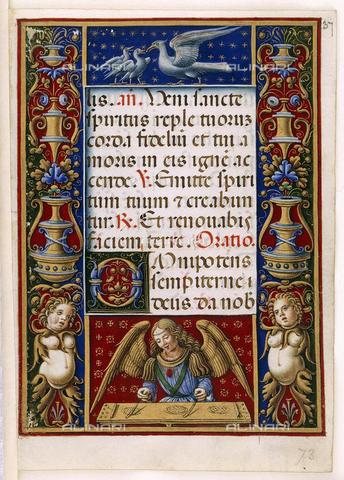 37
lis. an̄. Veni sancte
spiritus reple tuoruz
corda fideliū et tui a
moris in eis ignē ac
cende. V. Emitte spiri
tum tuum 7 creabun
tur. R. Et renouabis
faciem terre. Oratio.
Omnipotens
sempiterne i
deus da nob
ALINARI
73